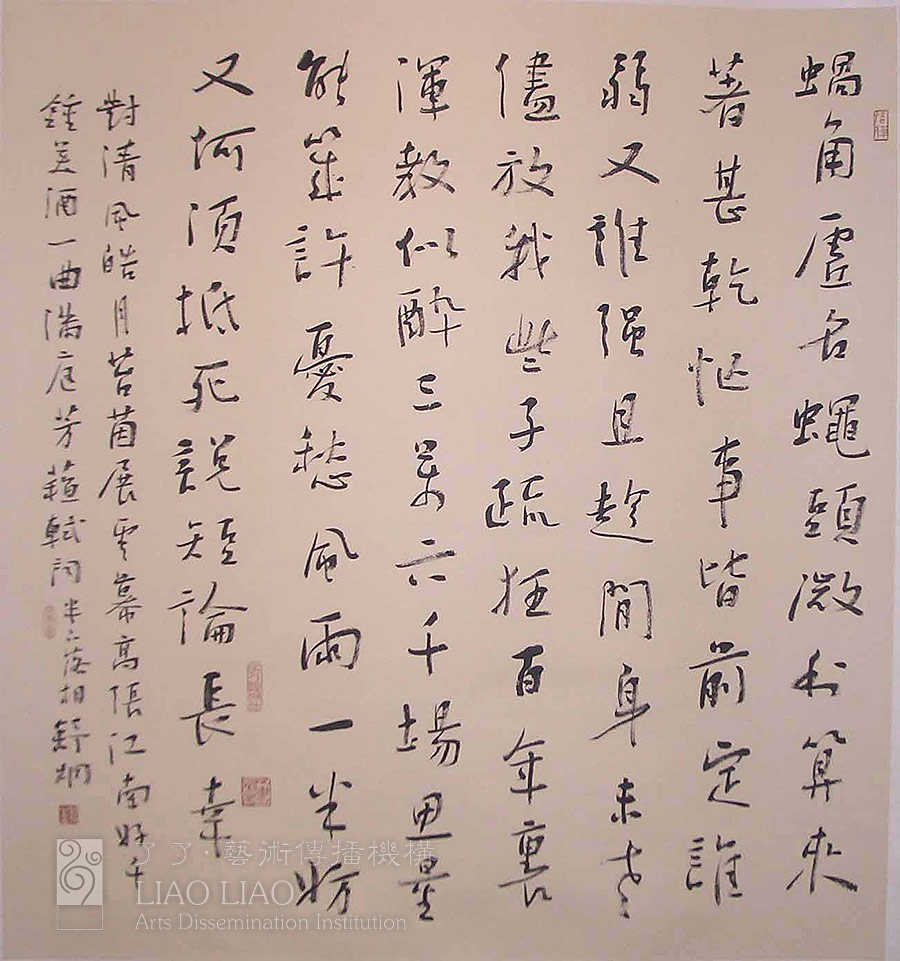 蝸角虛名蠅頭微利算來
著甚乾忙事皆前定誰
弱又誰强且趁閒身未老
儘放我些子疏狂百年裏
渾教似醉三萬六千場思量
能幾許憂愁風雨一半妨
又何須抵死說短論長幸
對清風皓月苔茵展雲幕高張江南好千
鍾美酒一曲滿庭芳蘇軾詞
了了·藝術傳播機構
LIAO LIAO
Arts Dissemination Institution